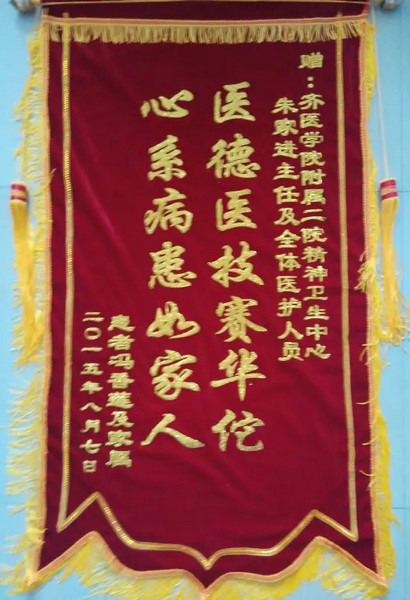 赠：齐医学院附属二院精神卫生中心
朱家进主任及全体医护人员
医德医技赛华佗
心系病患如家人
患者冯香莲及家属
二〇一五年八月七日